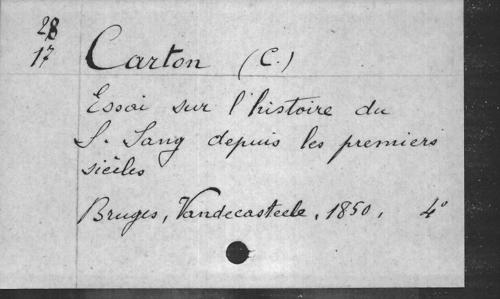 28
17
Carton (C.)
Essai sur l'histoire du
S. Sang depuis les premiers
siècles
Bruges, Vandecasteele, 1850, 4°